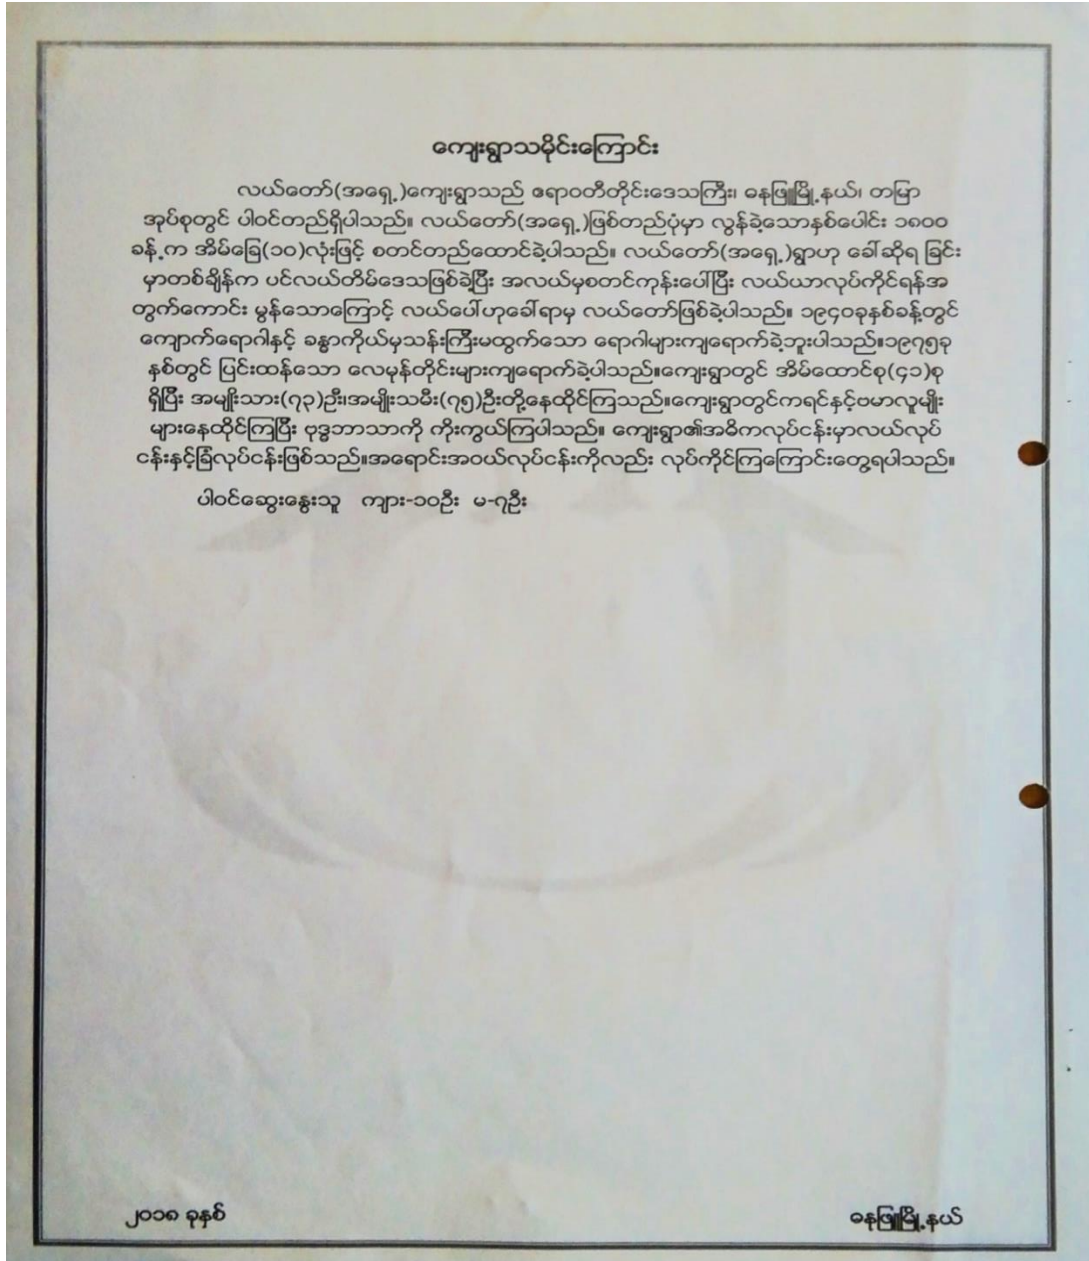 ကျေးရွာသမိုင်းကြောင်း
လယ်တော်(အရှေ့)ကျေးရွာသည် ဧရာဝတီတိုင်းဒေသကြီး၊ ဓနုဖြူမြို့နယ်၊ တမြာ
အုပ်စုတွင် ပါဝင်တည်ရှိပါသည်။ လယ်တော်(အရှေ့)ဖြစ်တည်ပုံမှာ လွန်ခဲ့သောနှစ်ပေါင်း ၁၈၀၀
ခန့်က အိမ်ခြေ(၁၀)လုံးဖြင့် စတင်တည်ထောင်ခဲ့ပါသည်။ လယ်တော်(အရှေ့)ရွာဟု ခေါ်ဆိုရ ခြင်း
မှာတစ်ချိန်က ပင်လယ်တိမ်ဒေသဖြစ်ခဲ့ပြီး အလယ်မှစတင်ကုန်းပေါ်ပြီး လယ်ယာလုပ်ကိုင်ရန်အ
တွက်ကောင်း မွန်သောကြောင့် လယ်ပေါ်ဟုခေါ်ရာမှ လယ်တော်ဖြစ်ခဲ့ပါသည်။ ၁၉၄၀ခုနှစ်ခန့်တွင်
ကျောက်ရောဂါနှင့် ခန္ဓာကိုယ်မှသန်းကြီးမထွက်သော ရောဂါများကျရောက်ခဲ့ဘူးပါသည်။၁၉၇၅ခု
နှစ်တွင် ပြင်းထန်သော လေမုန်တိုင်းများကျရောက်ခဲ့ပါသည်။ကျေးရွာတွင် အိမ်ထောင်စု(၄၁)စု
ရှိပြီး အမျိုးသား(၇၃)ဦး၊အမျိုးသမီး(၇၅)ဦးတို့နေထိုင်ကြသည်။ကျေးရွာတွင်ကရင်နှင့်ဗမာလူမျိုး
များနေထိုင်ကြပြီး ဗုဒ္ဓဘာသာကို ကိုးကွယ်ကြပါသည်။ ကျေးရွာ၏အဓိကလုပ်ငန်းမှာလယ်လုပ်
ငန်းနှင့်ခြံလုပ်ငန်းဖြစ်သည်။အရောင်းအဝယ်လုပ်ငန်းကိုလည်း လုပ်ကိုင်ကြကြောင်းတွေ့ရပါသည်။
ပါဝင်ဆွေးနွေးသူ ကျား-၁၀ဦး မ-၇ဦး
၂၀၁၈ ခုနှစ်
ဓနုဖြူမြို့နယ်